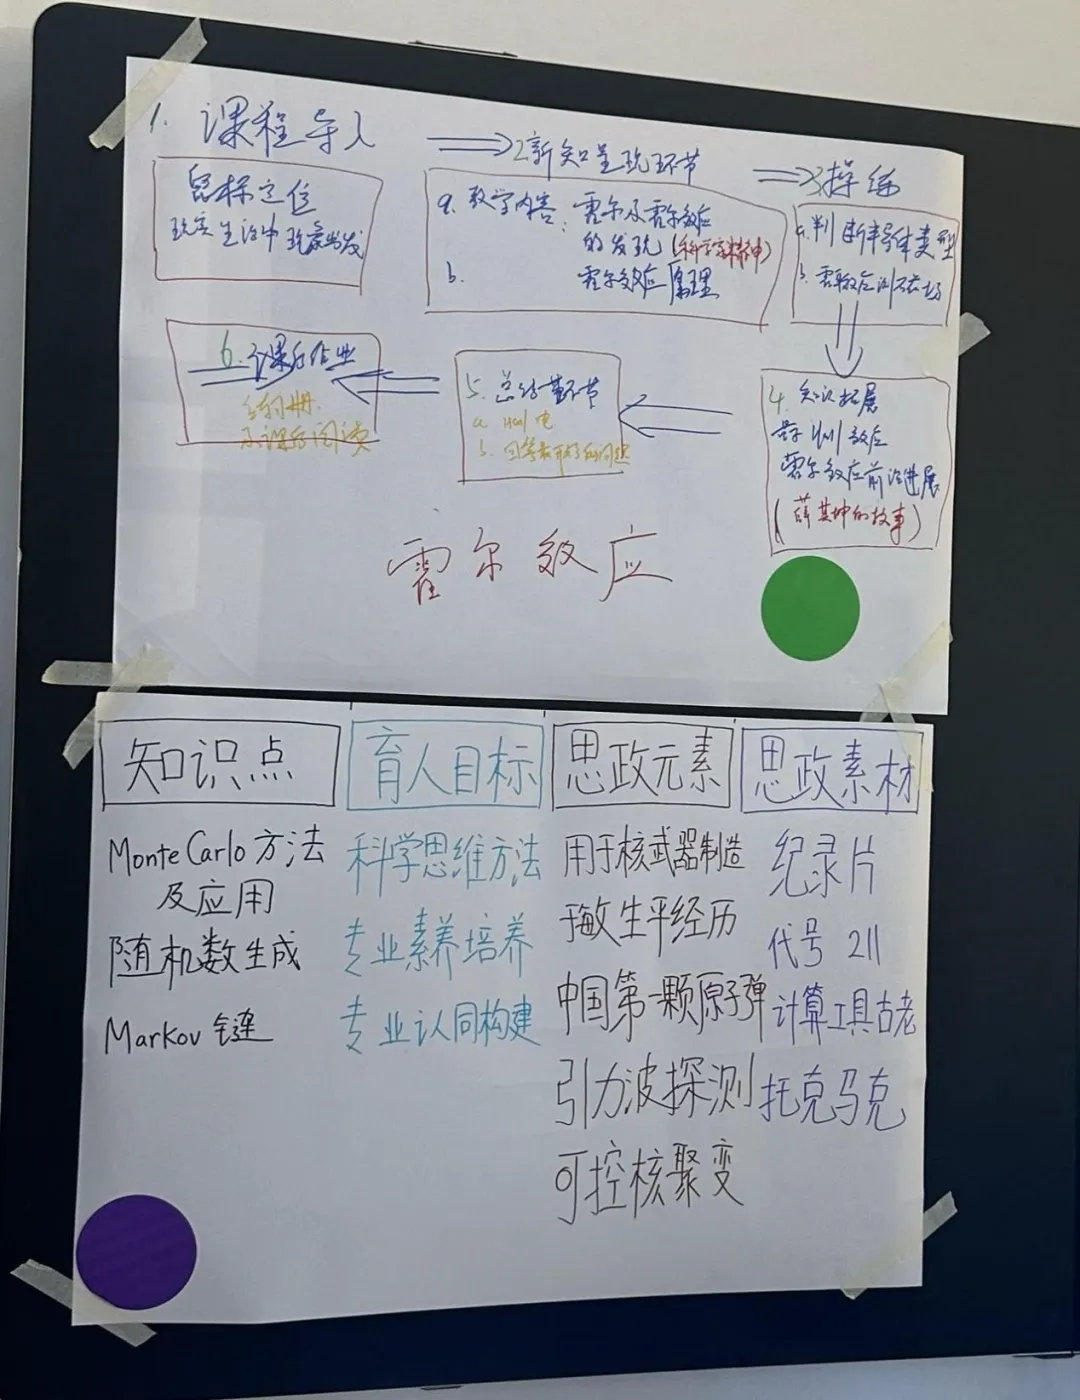 1. 课程导入
鼠标定位
现实生活中现象出发
2新知呈现环节
a. 教学内容: 霍尔及霍尔效应
的发现(科学家精神)
b. 霍尔效应原理
3操练
a.判断半导体类型
b. 霍尔效应测磁场
4. 知识拓展
量子Hall效应
霍尔效应前沿进展
(薛其坤的故事)
5. 总结环节
a. Hall 电
b. 回答最开始的问题
6. 课后作业
练习册
及课后阅读
霍尔效应
知识点
Monte Carlo 方法
及应用
随机数生成
Markov 链
育人目标
科学思维方法
专业素养培养
专业认同构建
思政元素
用于核武器制造
于敏生平经历
中国第一颗原子弹
引力波探测
可控核聚变
思政素材
纪录片
代号 211
计算工具古老
托克马克